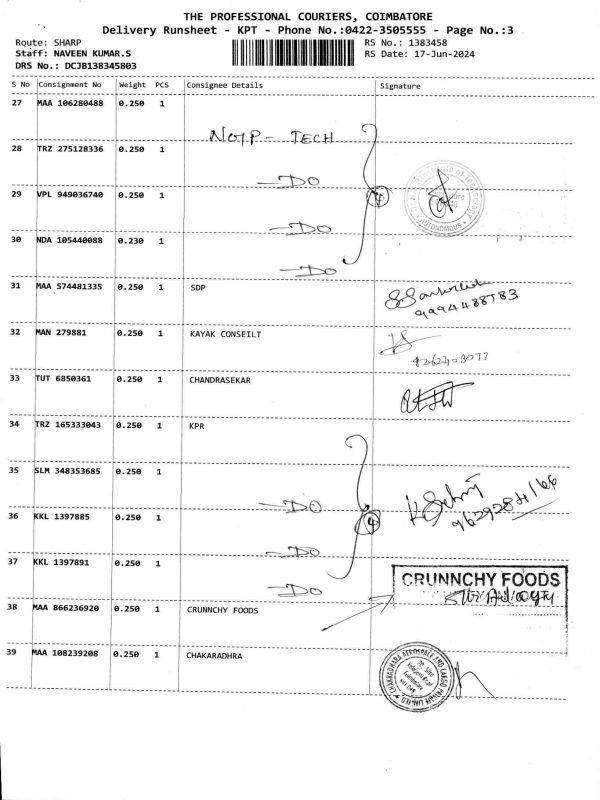 THE PROFESSIONAL COURIERS, COIMBATORE
Delivery Runsheet - KPT - Phone No.:0422-3505555 - Page No.:3
Route: SHARP
RS No.: 1383458
Staff: NAVEEN KUMAR.S
RS Date: 17-Jun-2024
DRS No.: DCJB138345803
S No Consignment No Weight PCS Consignee Details Signature
27 MAA 106280488 0.250 1
NGIP - TECH
28 TRZ 275128336 0.250 1
—DO
29 VPL 949036740 0.250 1
4
—DO
30 NDA 105440088 0.230 1
—DO
31 MAA 574481335 0.250 1 SDP
9994488783
32 MAN 279881 0.250 1 KAYAK CONSEILT
33 TUT 6850361 0.250 1 CHANDRASEKAR
34 TRZ 165333043 0.250 1 KPR
35 SLM 348353685 0.250 1
—DO
36 KKL 1397885 0.250 1
4
—DO
37 KKL 1397891 0.250 1
—DO
CRUNNCHY FOODS
38 MAA 866236920 0.250 1 CRUNNCHY FOODS
39 MAA 108239208 0.250 1 CHAKARADHRA